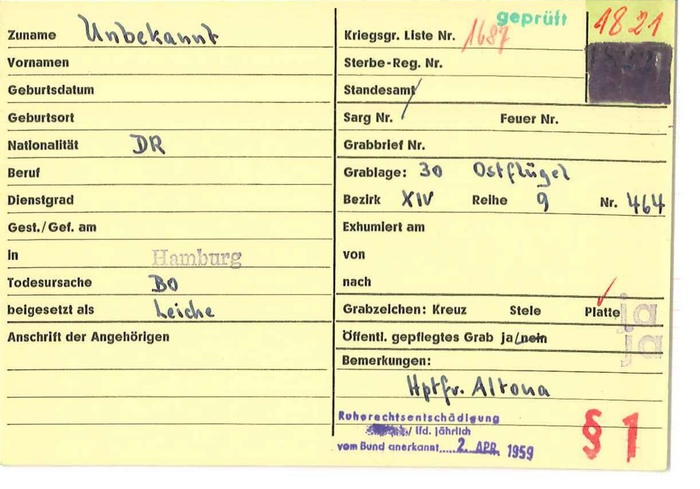 Zuname Unbekannt
Vornamen
Geburtsdatum
Geburtsort
Nationalität DR
Beruf
Dienstgrad
Gest./Gef. am
in Hamburg
Todesursache BO
beigesetzt als Leiche
Anschrift der Angehörigen
geprüft
1821
Kriegsgr. Liste Nr. 1687
Sterbe-Reg. Nr.
Standesamt
Sarg Nr. / Feuer Nr.
Grabbrief Nr.
Grablage: 30 Ostflügel
Bezirk XIV Reihe 9 Nr. 464
Exhumiert am
von
nach
Grabzeichen: Kreuz Stele Platte ja
Öffentl. gepflegtes Grab ja/nein ja
Bemerkungen:
Hptfr. Altona
Ruherechtsentschädigung
/ lfd. jährlich
vom Bund anerkannt..... 2. APR. 1959
§ 1